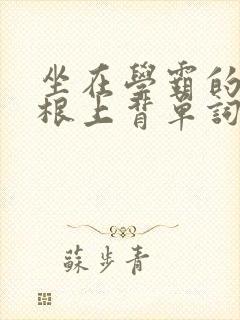 坐在學霸的
根上背單詞
蘇步青